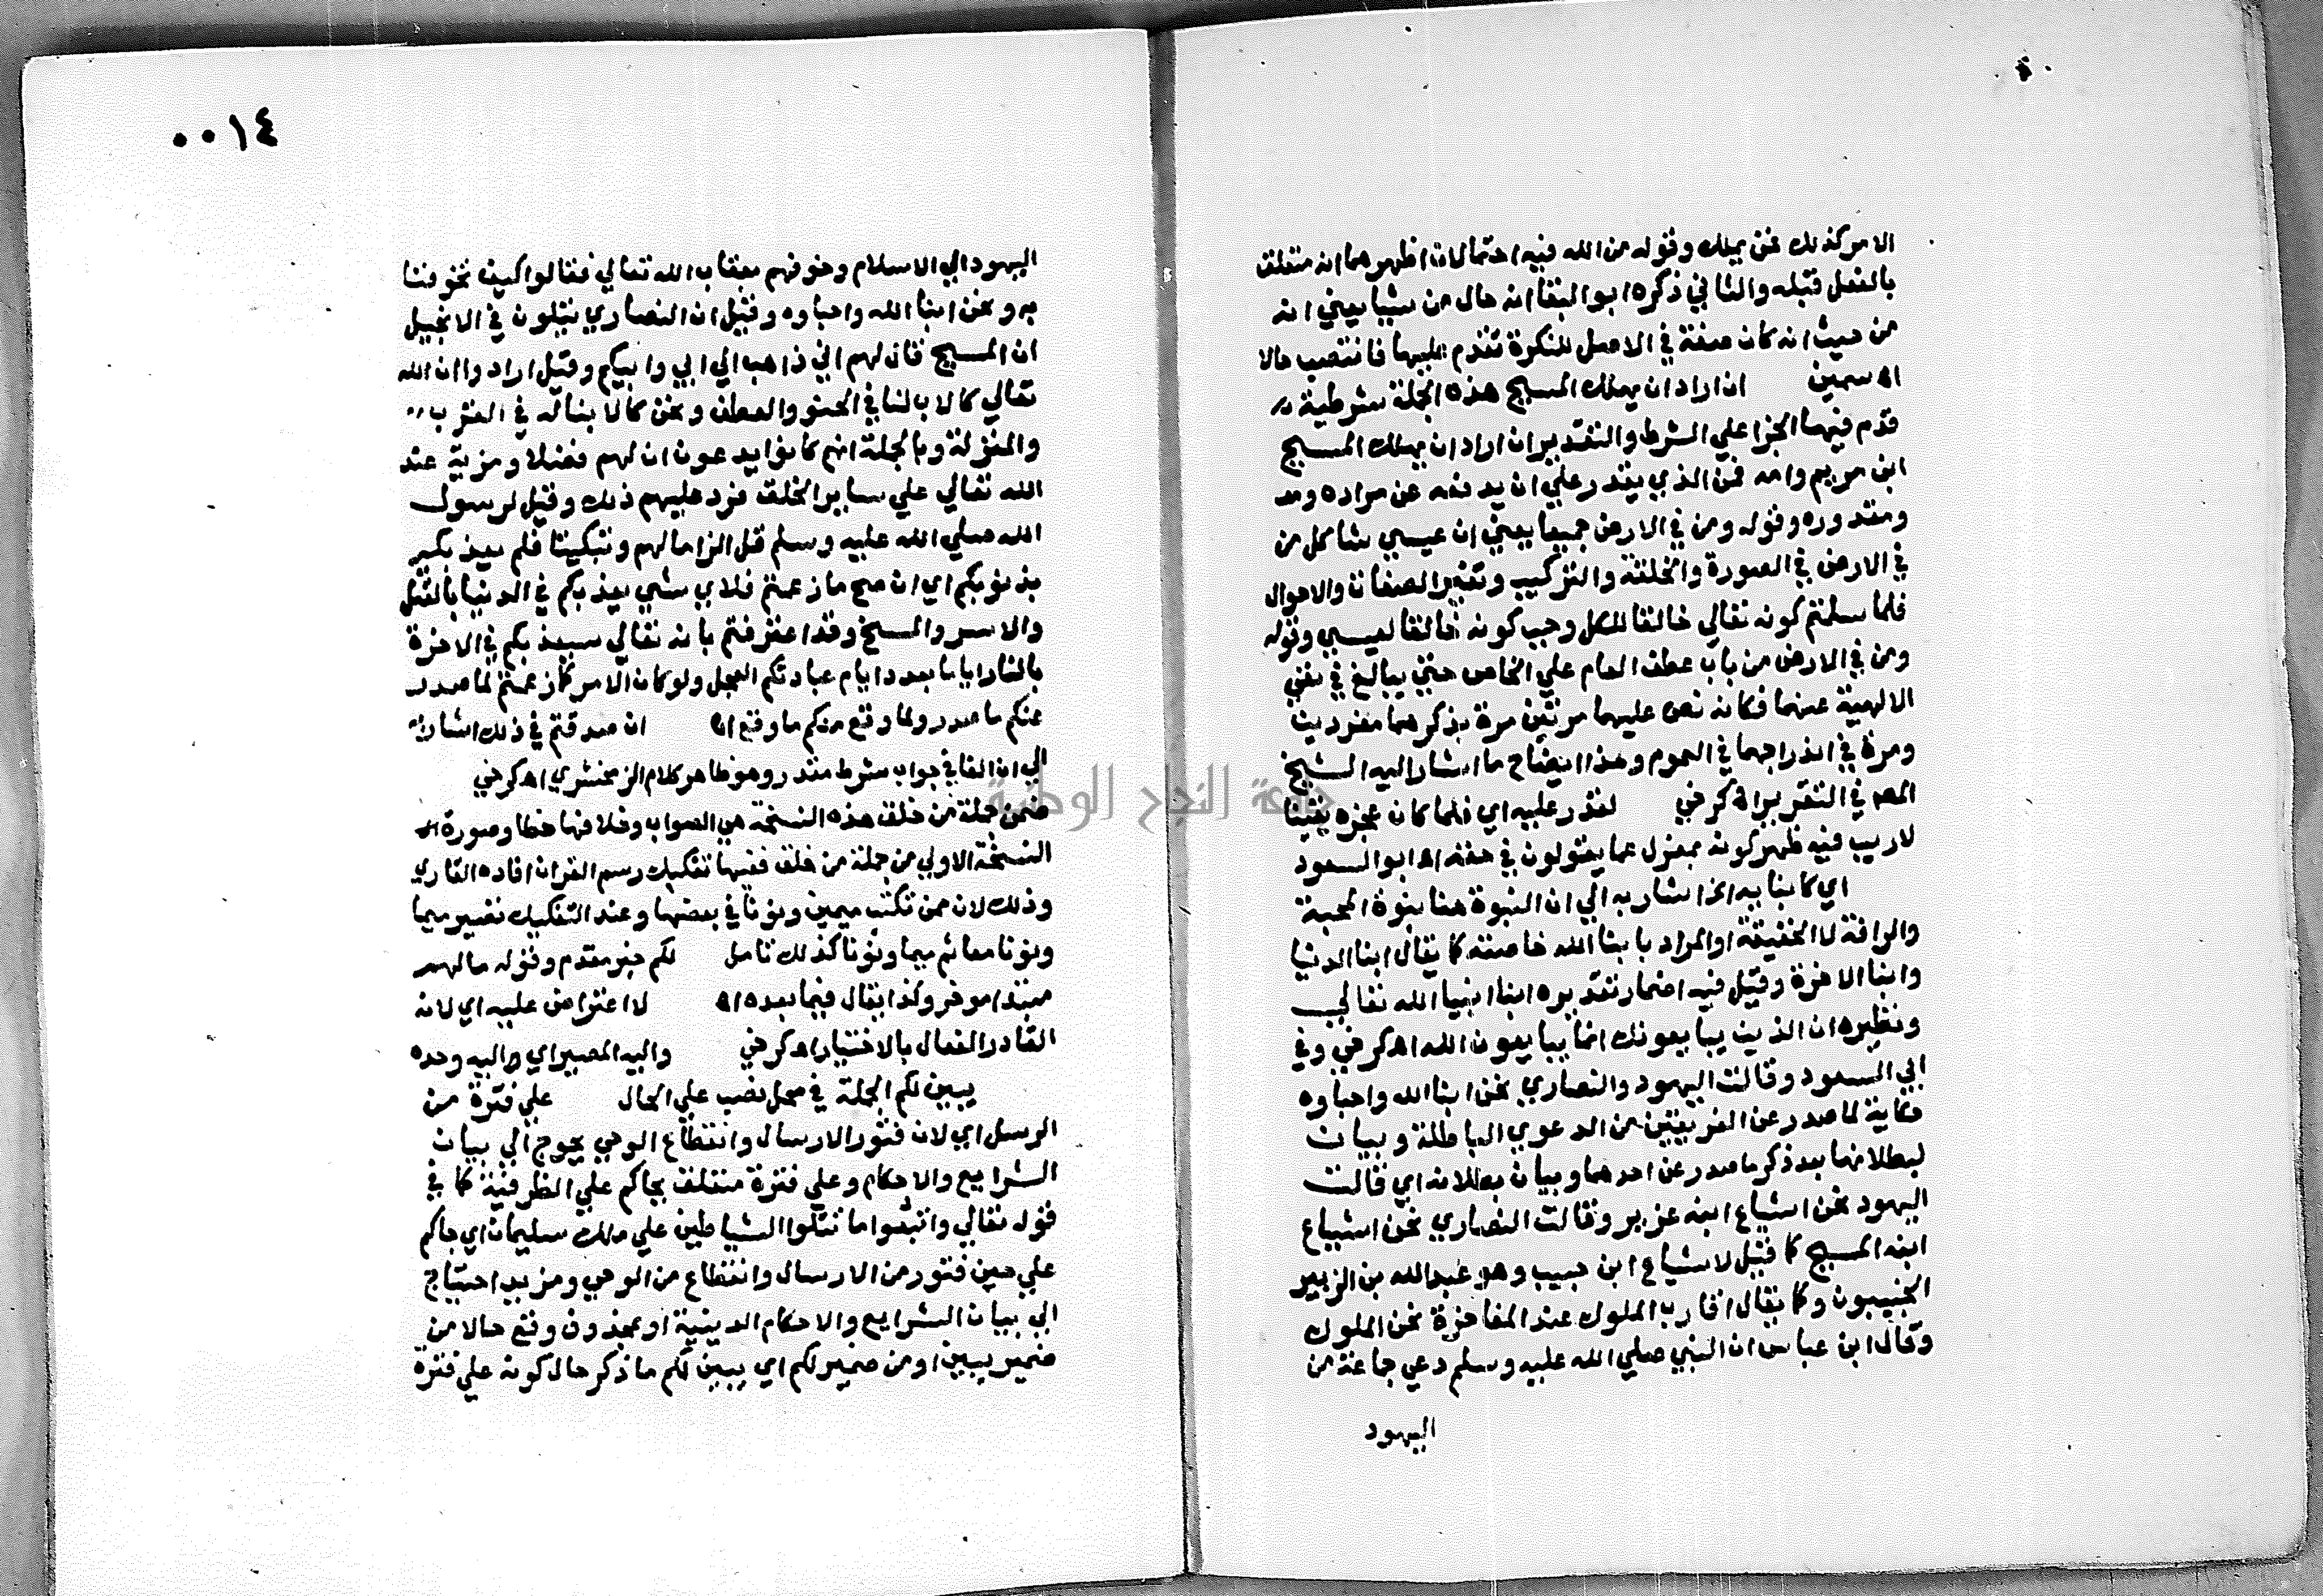 الامر كذلك فمن يملك وقوله من الله فيه احتمالان اظهرهما انه متعلق
بالفعل قبله والثاني ذكره ابو البقا انه حال من شيا يعني انه
من حيث انه كان صفة في الاصل للنكرة تقدم عليها فانتصب حالا
اه سمين ان اراد ان يهلك المسيح هذه الجملة شرطية
قدم فيها الجزا علي الشرط والتقدير ان اراد ان يهلك المسيح
ابن مريم وامه فمن الذي يقدر علي ان يدفعه عن مراده
ومقدوره وقوله ومن في الارض جميعا يعني ان عيسي شاكل من
في الارض في الصورة والخلقة والتركيب وتغير الصفات والاحوال
فلما سلمتم كونه تعالي خالقا للكل وجب كونه خالقا لعيسي وقوله
ومن في الارض من باب عطف العام علي الخاص حتي يبالغ في نفي
الالهية عنهما فكانه نص عليهما مرتين مرة بذكرهما مفردين
ومرة في اندراجهما في العموم وهذا ايضاح ما اشار اليه الشيخ
المصـ في التقرير اه كرخي لقدر عليه اي فلما كان عجزه يقينا
لا ريب فيه ظهر كونه بمعزل عما يقولون في حقه اه ابو السعود
اي كابنايه الخ اشار به الي ان النبوة هنا بنوة المحبة
والرافة لا الحقيقة او المراد بابنا الله خاصته كما يقال ابنا الدنيا
وابنا الاخرة وقيل فيه اضمار تقديره ابنا انبيا الله تعالي
ونظيره ان الذين يبايعونك انما يبايعون الله اه كرخي وفي
ابي السعود وقالت اليهود والنصاري نحن ابنا الله واحباوه
حكاية لما صدر عن الفريقين من الدعوي الباطلة وبيان
لبطلانها بعد ذكر ما صدر عن احدهما وبيان بطلانه اي قالت
اليهود نحن اشياع ابنه عزير وقالت النصاري نحن اشياع
ابنه المسيح كما قيل لاشياع ابن خبيب وهو عبد الله بن الزبير
الخبيبون وكما يقال اقارب الملوك عند المفاخرة نحن الملوك
وقال ابن عباس ان النبي صلي الله عليه وسلم دعي جماعة من
اليهود
٠٠١٤
اليهود الي الاسلام وخوفهم بعقاب الله تعالي فقالوا كيف تخوفنا
به ونحن ابنا الله واحباوه وقيل ان النصاري يتلون في الانجيل
ان المسيح قال لهم اني ذاهب الي ابي وابيكم وقيل ارادوا ان الله
تعالي كالاب لنا في الحنو والعطف ونحن كالابنا له في القرب
والمنزلة وبالجملة انهم كانوا يدعون ان لهم فضلا ومزية عند
الله تعالي علي ساير الخلق فرد عليهم ذلك وقيل لرسول
الله صلي الله عليه وسلم قل الزاما لهم وتبكيتا فلم يعذبكم
بذنوبكم اي ان صح ما زعمتم فلاي شي يعذبكم في الدنيا بالقتل
والاسر والمسخ وقد اعترفتم بانه تعالي سيعذبكم في الاخرة
بالنار اياما بعدد ايام عبادتكم العجل ولو كان الامر كما زعمتم لما صدر
عنكم ما صدر ولما وقع منكم ما وقع اه ان صدقتم في ذلك اشارة
الي ان الفا في جواب شرط مقدر وهو ظاهر كلام الزمخشري اه كرخي
ضمن جملة من خلق هذه النسخة هي الصواب وخلافها خطا وصورة
النسخة الاولي من جملة من خلق ففيها تفكيك رسم القران افاده القاري
وذلك لان ممن تكتب ميمين ونونا في بعضها وعند التفكيك تصير ميما
ونونا معا ثم ميما ونونا كذلك تامل لكم خبر مقدم وقوله ما لهم
مبتدا موخر وكذا يقال فيما بعده اه لا اعتراض عليه اي لانه
القادر الفعال بالاختيار اه كرخي واليه المصير اي واليه وحده
يبين لكم الجملة في محل نصب علي الحال علي فترة من
الرسل اي لان فتور الارسال وانقطاع الوحي يحوج الي بيان
الشرايع والاحكام وعلي فترة متعلق بجاكم علي الظرفية كما في
قوله تعالي واتبعوا ما تتلوا الشياطين علي ملك سليمان اي جاكم
علي حين فتور من الارسال وانقطاع من الوحي ومزيد احتياج
الي بيان الشرايع والاحكام الدينية او بمحذوف وقع حالا من
ضمير يبين او من ضمير لكم اي يبين لكم ما ذكر حال كونه علي فترة
جامعة النجاح الوطنية